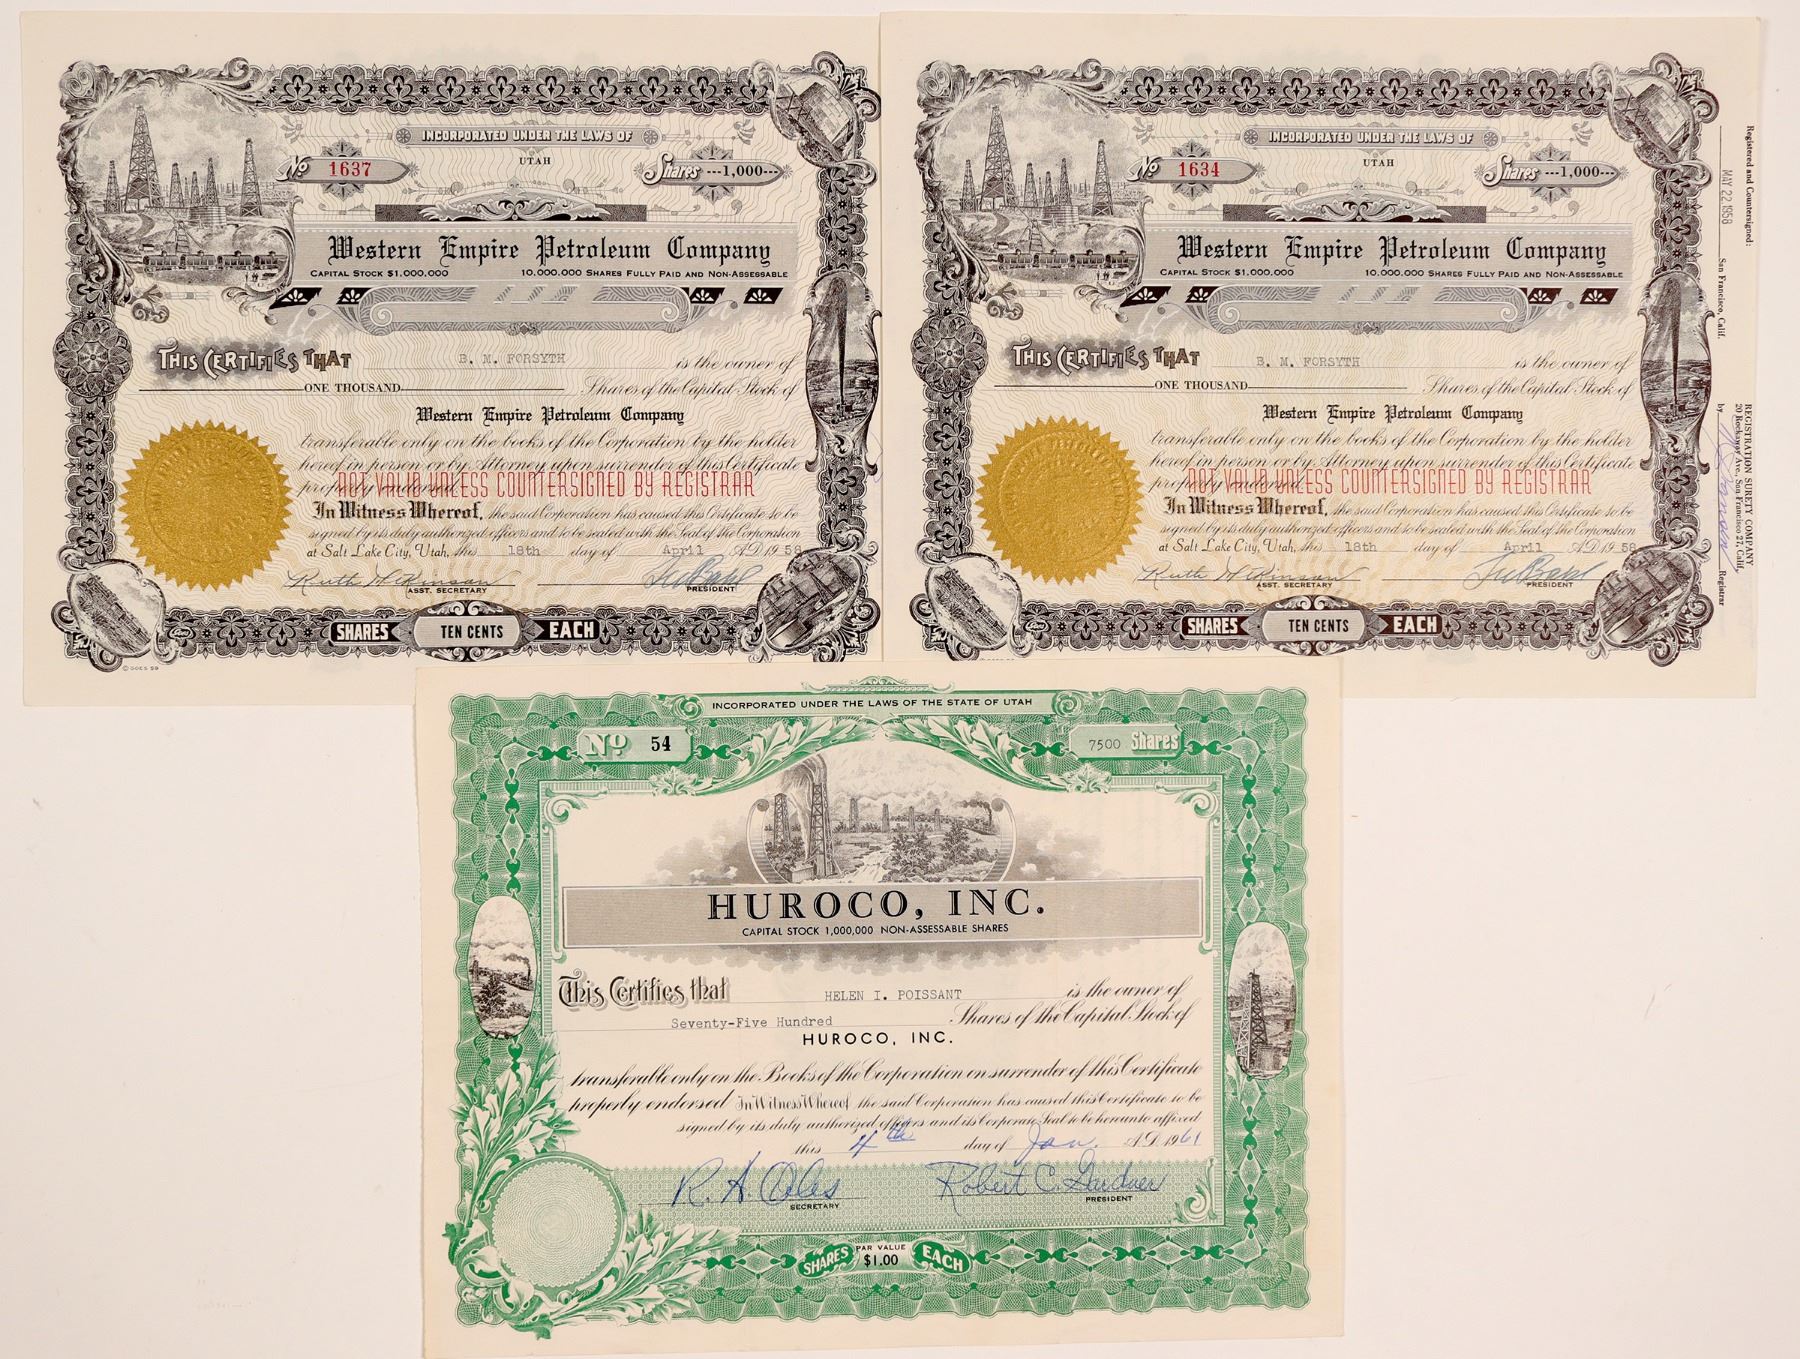 INCORPORATED UNDER THE LAWS OF
UTAH
No 1637
Shares ---1,000---
Western Empire Petroleum Company
CAPITAL STOCK $1,000.000 10.000.000 SHARES FULLY PAID AND NON-ASSESSABLE
THIS CERTIFIES THAT B. M. FORSYTH is the owner of
ONE THOUSAND Shares of the Capital Stock of
Western Empire Petroleum Company
transferable only on the books of the Corporation by the holder
hereof in person or by Attorney upon surrender of this Certificate
properly endorsed.
NOT VALID UNLESS COUNTERSIGNED BY REGISTRAR
In Witness Whereof, the said Corporation has caused this Certificate to be
signed by its duly authorized officers and to be sealed with the Seal of the Corporation
at Salt Lake City, Utah, this 18th day of April A.D. 1958
ASST. SECRETARY
PRESIDENT
SHARES TEN CENTS EACH
© GOES 59
INCORPORATED UNDER THE LAWS OF
UTAH
No 1634
Shares ---1,000---
Western Empire Petroleum Company
CAPITAL STOCK $1,000.000 10.000.000 SHARES FULLY PAID AND NON-ASSESSABLE
THIS CERTIFIES THAT B. M. FORSYTH is the owner of
ONE THOUSAND Shares of the Capital Stock of
Western Empire Petroleum Company
transferable only on the books of the Corporation by the holder
hereof in person or by Attorney upon surrender of this Certificate
properly endorsed.
NOT VALID UNLESS COUNTERSIGNED BY REGISTRAR
In Witness Whereof, the said Corporation has caused this Certificate to be
signed by its duly authorized officers and to be sealed with the Seal of the Corporation
at Salt Lake City, Utah, this 18th day of April A.D. 1958
ASST. SECRETARY
PRESIDENT
SHARES TEN CENTS EACH
Registered and Countersigned:
MAY 22 1958 San Francisco, Calif.
REGISTRATION SURETY COMPANY
20 Rockaway Ave., San Francisco 27, Calif.
by Registrar
INCORPORATED UNDER THE LAWS OF THE STATE OF UTAH
No 54
7500 Shares
HUROCO, INC.
CAPITAL STOCK 1,000,000 NON-ASSESSABLE SHARES
This Certifies that HELEN I. POISSANT is the owner of
Seventy-Five Hundred Shares of the Capital Stock of
HUROCO, INC.
transferable only on the Books of the Corporation on surrender of this Certificate
properly endorsed In Witness Whereof the said Corporation has caused this Certificate to be
signed by its duly authorized officers and its Corporate Seal to be hereunto affixed
this 4th day of Jan. A.D. 1961
Robert C. Gardner
SECRETARY
PRESIDENT
SHARES PAR VALUE $1.00 EACH